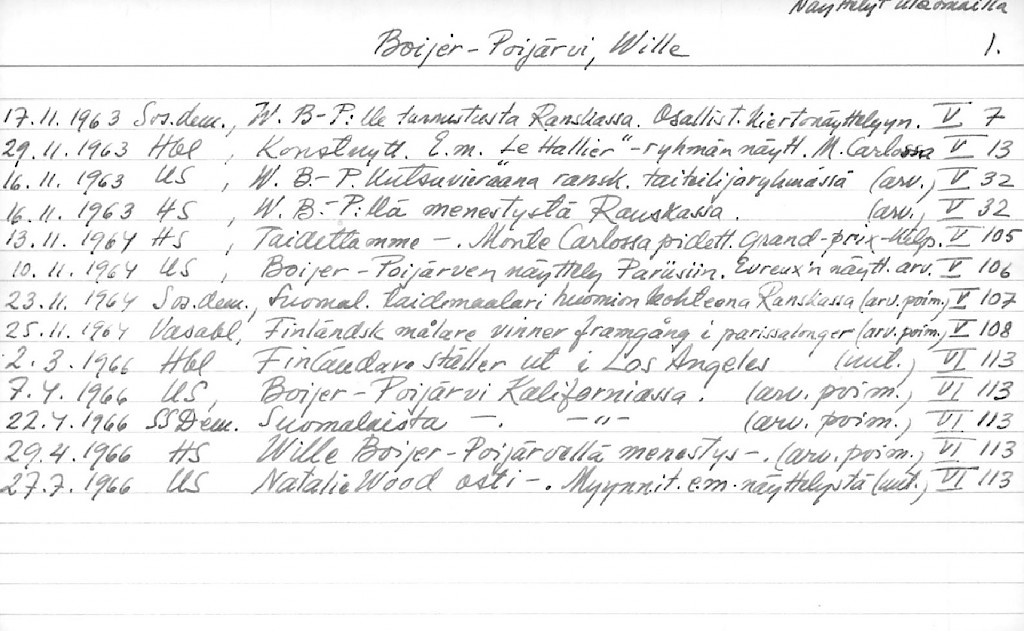 Näyttelyt ulkomailla
Boijer-Poijärvi, Wille 1.
17.11.1963 Sos.dem., W. B-P:lle tunnustusta Ranskassa. Osallist. kiertonäyttelyyn. V 7
29.11.1963 Hbl , Konstnytt. E.m. "Le Hallier"-ryhmän näytt. M.Carlossa V 13
16.11.1963 US , W. B.-P. kutsuvieraana ransk. taiteilijaryhmässä (arv.) V 32
16.11.1963 HS , W. B.-P:llä menestystä Ranskassa. (arv.) V 32
13.11.1964 HS , Taidettamme -. Monte Carlossa pidett. Grand-prix-kilp. V 105
10.11.1964 US , Boijer-Poijärven näyttely Pariisiin. Evreux'n näytt. arv. V 106
23.11.1964 Sos.dem., Suomal. taidemaalari huomion kohteena Ranskassa (arv.poim.) V 107
25.11.1964 Vasabl, Finländsk målare vinner framgång i parissalonger (arv.poim.) V 108
2.3.1966 Hbl Finländare ställer ut i Los Angeles (uut.) VI 113
7.4.1966 US, Boijer-Poijärvi Kaliforniassa. (arv. poim.) VI 113
22.4.1966 SSDem. Suomalaista -. -"- (arv. poim.) VI 113
29.4.1966 HS Wille Boijer-Poijärvellä menestys-. (arv.poim.) VI 113
27.7.1966 US Natalie Wood osti-. Myynn.it. e.m. näyttelystä (uut.) VI 113